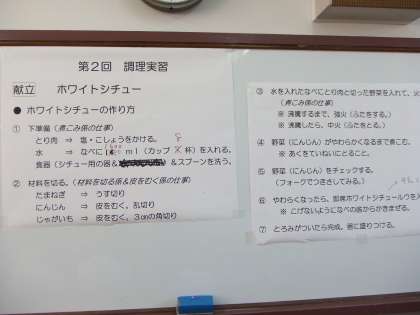 第2回 調理実習
献立 ホワイトシチュー
● ホワイトシチューの作り方
① 下準備(煮こみ係の仕事)
とり肉 ⇒ 塩・こしょうをかける。
水 ⇒ なべに ml(カップ 杯)を入れる。
食器(シチュー用の器& &スプーンを洗う。
② 材料を切る。(材料を切る係&皮をむく係の仕事)
たまねぎ ⇒ うす切り
にんじん ⇒ 皮をむく、乱切り
じゃがいも ⇒ 皮をむく、3㎝の角切り
③ 水を入れたなべにとり肉と切った野菜を入れて、火
(煮こみ係の仕事)
※ 沸騰するまで、強火(ふたをする。)
※ 沸騰したら、中火(ふたをとる。)
④ 野菜(にんじん)がやわらかくなるまで煮こむ。
※ あくをていねいにとること。
⑤ 野菜(にんじん)をチェックする。
(フォークでつきさしてみる。)
⑥ やわらかくなったら、即席ホワイトシチュールウを入
※ こげないようになべの底からかきまぜる。
⑦ とろみがついたら完成。器に盛りつける。